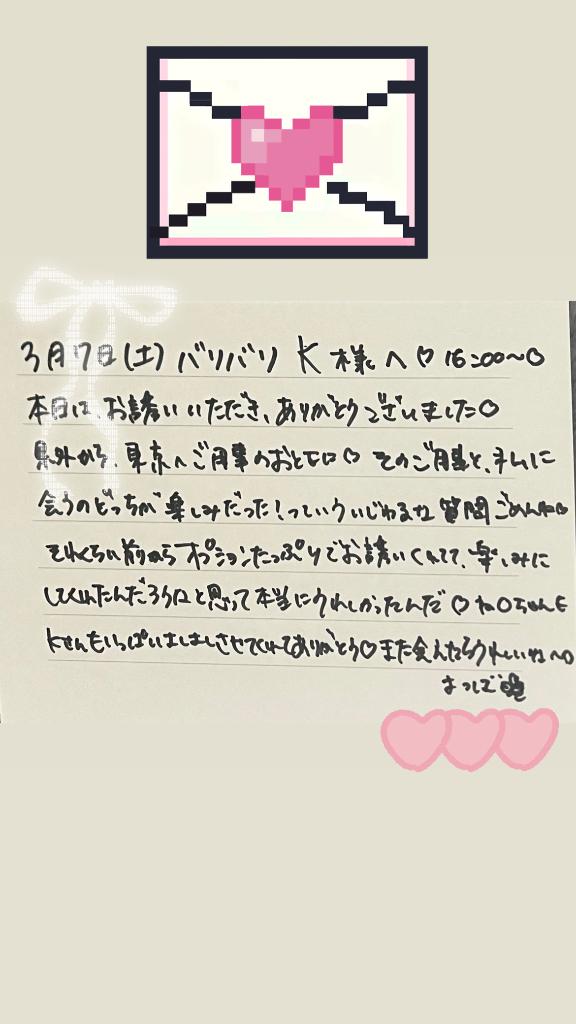 3月7日(土) バリバリ K 様へ♡ 16:00〜♡
本日は、お誘いいただき、ありがとうございました♡
県外から、東京へご用事のおとモに♡ そのご用事と、私に
会うのどっちが楽しみだった!っていういじわるな質問ごめんね♡
それくらい前からオプションたっぷりでお誘いくれて、楽しみに
してくれたんだろうなと思って本当にうれしかったんだ♡
Kさんもいっぱいましましさせてくれてありがとう♡また会えたらうれしいね〜♡